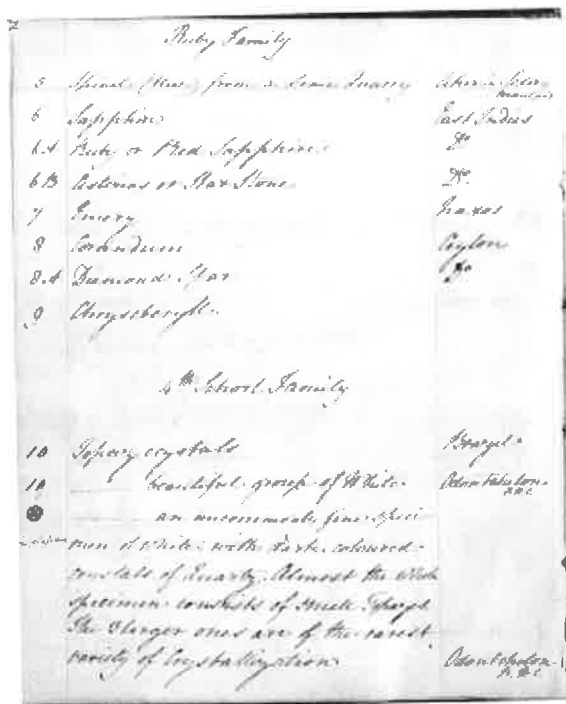 Ruby Family
5 Spinel (blue) from a Lime Quarry
6 Sapphire East Indies
6A Ruby or Red Sapphire Do
6B Asterias or Star Stone Do
7 Emery Naxos
8 Corundum Ceylon
8A Diamond Spar Do
9 Chrysoberyll
4th Schorl Family
10 Topaz crystals
10 beautiful group of White
an uncommonly fine speci-
men of white with dark coloured
crystals of Quartz. Almost the whole
specimen consists of
The larger ones are of the rarest
variety of Crystallization